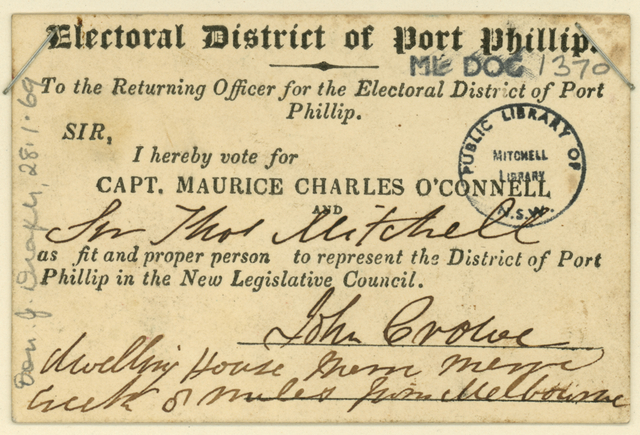 Electoral District of Port Phillip.
ML DOC 1370
To the Returning Officer for the Electoral District of Port
Phillip.
SIR,
I hereby vote for
CAPT. MAURICE CHARLES O'CONNELL
AND
Sir Thos Mitchell
as fit and proper person to represent the District of Port
Phillip in the New Legislative Council.
John Crowe
dwelling House Merri Merri
Creek 8 miles from Melbourne
PUBLIC LIBRARY OF
MITCHELL
LIBRARY
N.S.W.
Don. J. 28.1.69